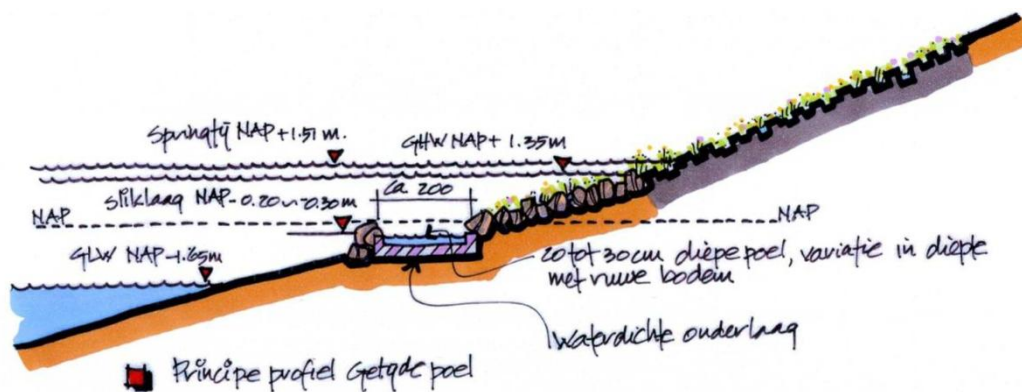 Springtij NAP+1.51 m.
GHW NAP+ 1.35m
ca 200
Sliklaag NAP-0.20~-0.30m
NAP
NAP
GLW NAP-1.65m
20 tot 30cm diepe poel, variatie in diepte
met ruwe bodem
Waterdichte onderlaag
Principe profiel Getijde poel